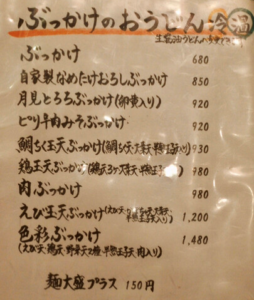 ぶっかけのおうどん 冷 温
ぶっかけ 680
自家製なめたけおろしぶっかけ 850
月見とろろぶっかけ(卵黄入り) 920
ピリ辛肉みそぶっかけ 920
鯛ちく玉天ぶっかけ 930
鶏玉天ぶっかけ 980
肉ぶっかけ 980
えび玉天ぶっかけ 1,200
色彩ぶっかけ 1,480
麺大盛プラス 150円